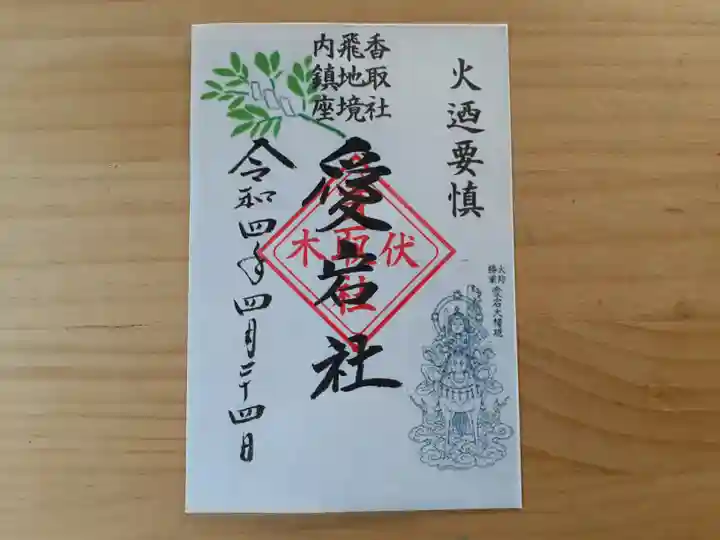 火迺要慎
香取社
飛地境
内鎮座
愛宕社
伏
木
取
社
令和四年四月二十四日
愛宕大権現